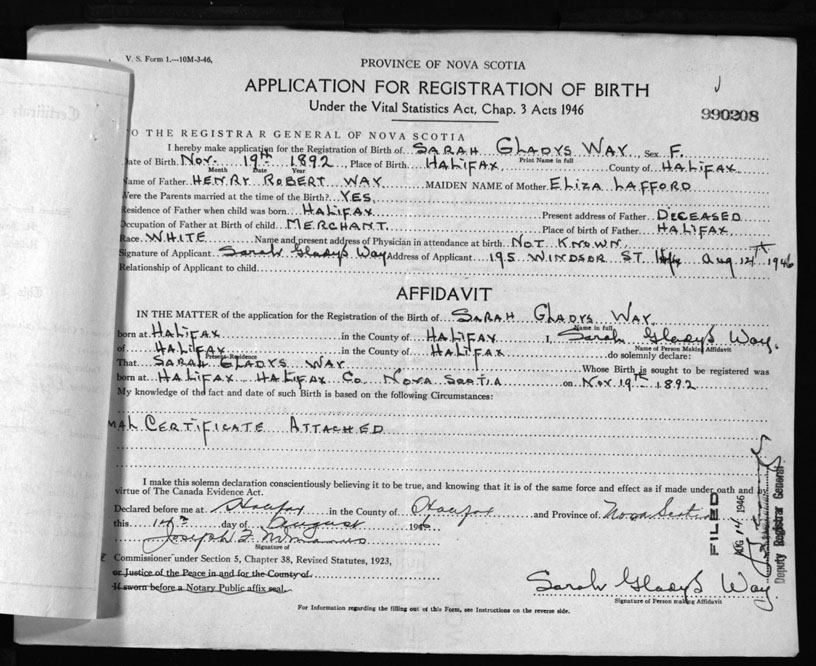 V. S. Form 1.—10M-3-46,
PROVINCE OF NOVA SCOTIA
APPLICATION FOR REGISTRATION OF BIRTH
Under the Vital Statistics Act, Chap. 3 Acts 1946
990208
TO THE REGISTRAR GENERAL OF NOVA SCOTIA
I hereby make application for the Registration of Birth of SARAH GLADYS WAY, Sex F.
Print Name in full
Date of Birth NOV. 19th 1892, Place of Birth HALIFAX County of HALIFAX
Month Date Year
Name of Father HENRY ROBERT WAY MAIDEN NAME of Mother ELIZA LAFFORD
Were the Parents married at the time of the Birth? YES.
Residence of Father when child was born HALIFAX Present address of Father DECEASED
Occupation of Father at Birth of child MERCHANT. Place of birth of Father HALIFAX.
Race WHITE Name and present address of Physician in attendance at birth NOT KNOWN.
Signature of Applicant Sarah Gladys Way Address of Applicant 195 WINDSOR ST. Hfx Aug 14th 1946
Relationship of Applicant to child
AFFIDAVIT
IN THE MATTER of the application for the Registration of Birth of SARAH GLADYS WAY.
Name in full
born at HALIFAX in the County of HALIFAX I, Sarah Gladys Way.
Name of Person Making Affidavit
of HALIFAX in the County of HALIFAX do solemnly declare:
Present Residence
That SARAH GLADYS WAY Whose Birth is sought to be registered was
born at HALIFAX HALIFAX CO. NOVA SCOTIA on NOV. 19th 1892
My knowledge of the fact and date of such Birth is based on the following Circumstances:
CERTIFICATE ATTACHED
I make this solemn declaration conscientiously believing it to be true, and knowing that it is of the same force and effect as if made under oath and by
virtue of The Canada Evidence Act.
Declared before me at Halifax in the County of Halifax and Province of Nova Scotia
this 14th day of August 1946
Joseph
Signature of
Commissioner under Section 5, Chapter 38, Revised Statutes, 1923,
or Justice of the Peace in and for the County of
If sworn before a Notary Public affix seal.
Sarah Gladys Way
Signature of Person making Affidavit
For Information regarding the filling out of this Form, see Instructions on the reverse side.
FILED
AUG 14 1946
Deputy Registrar General